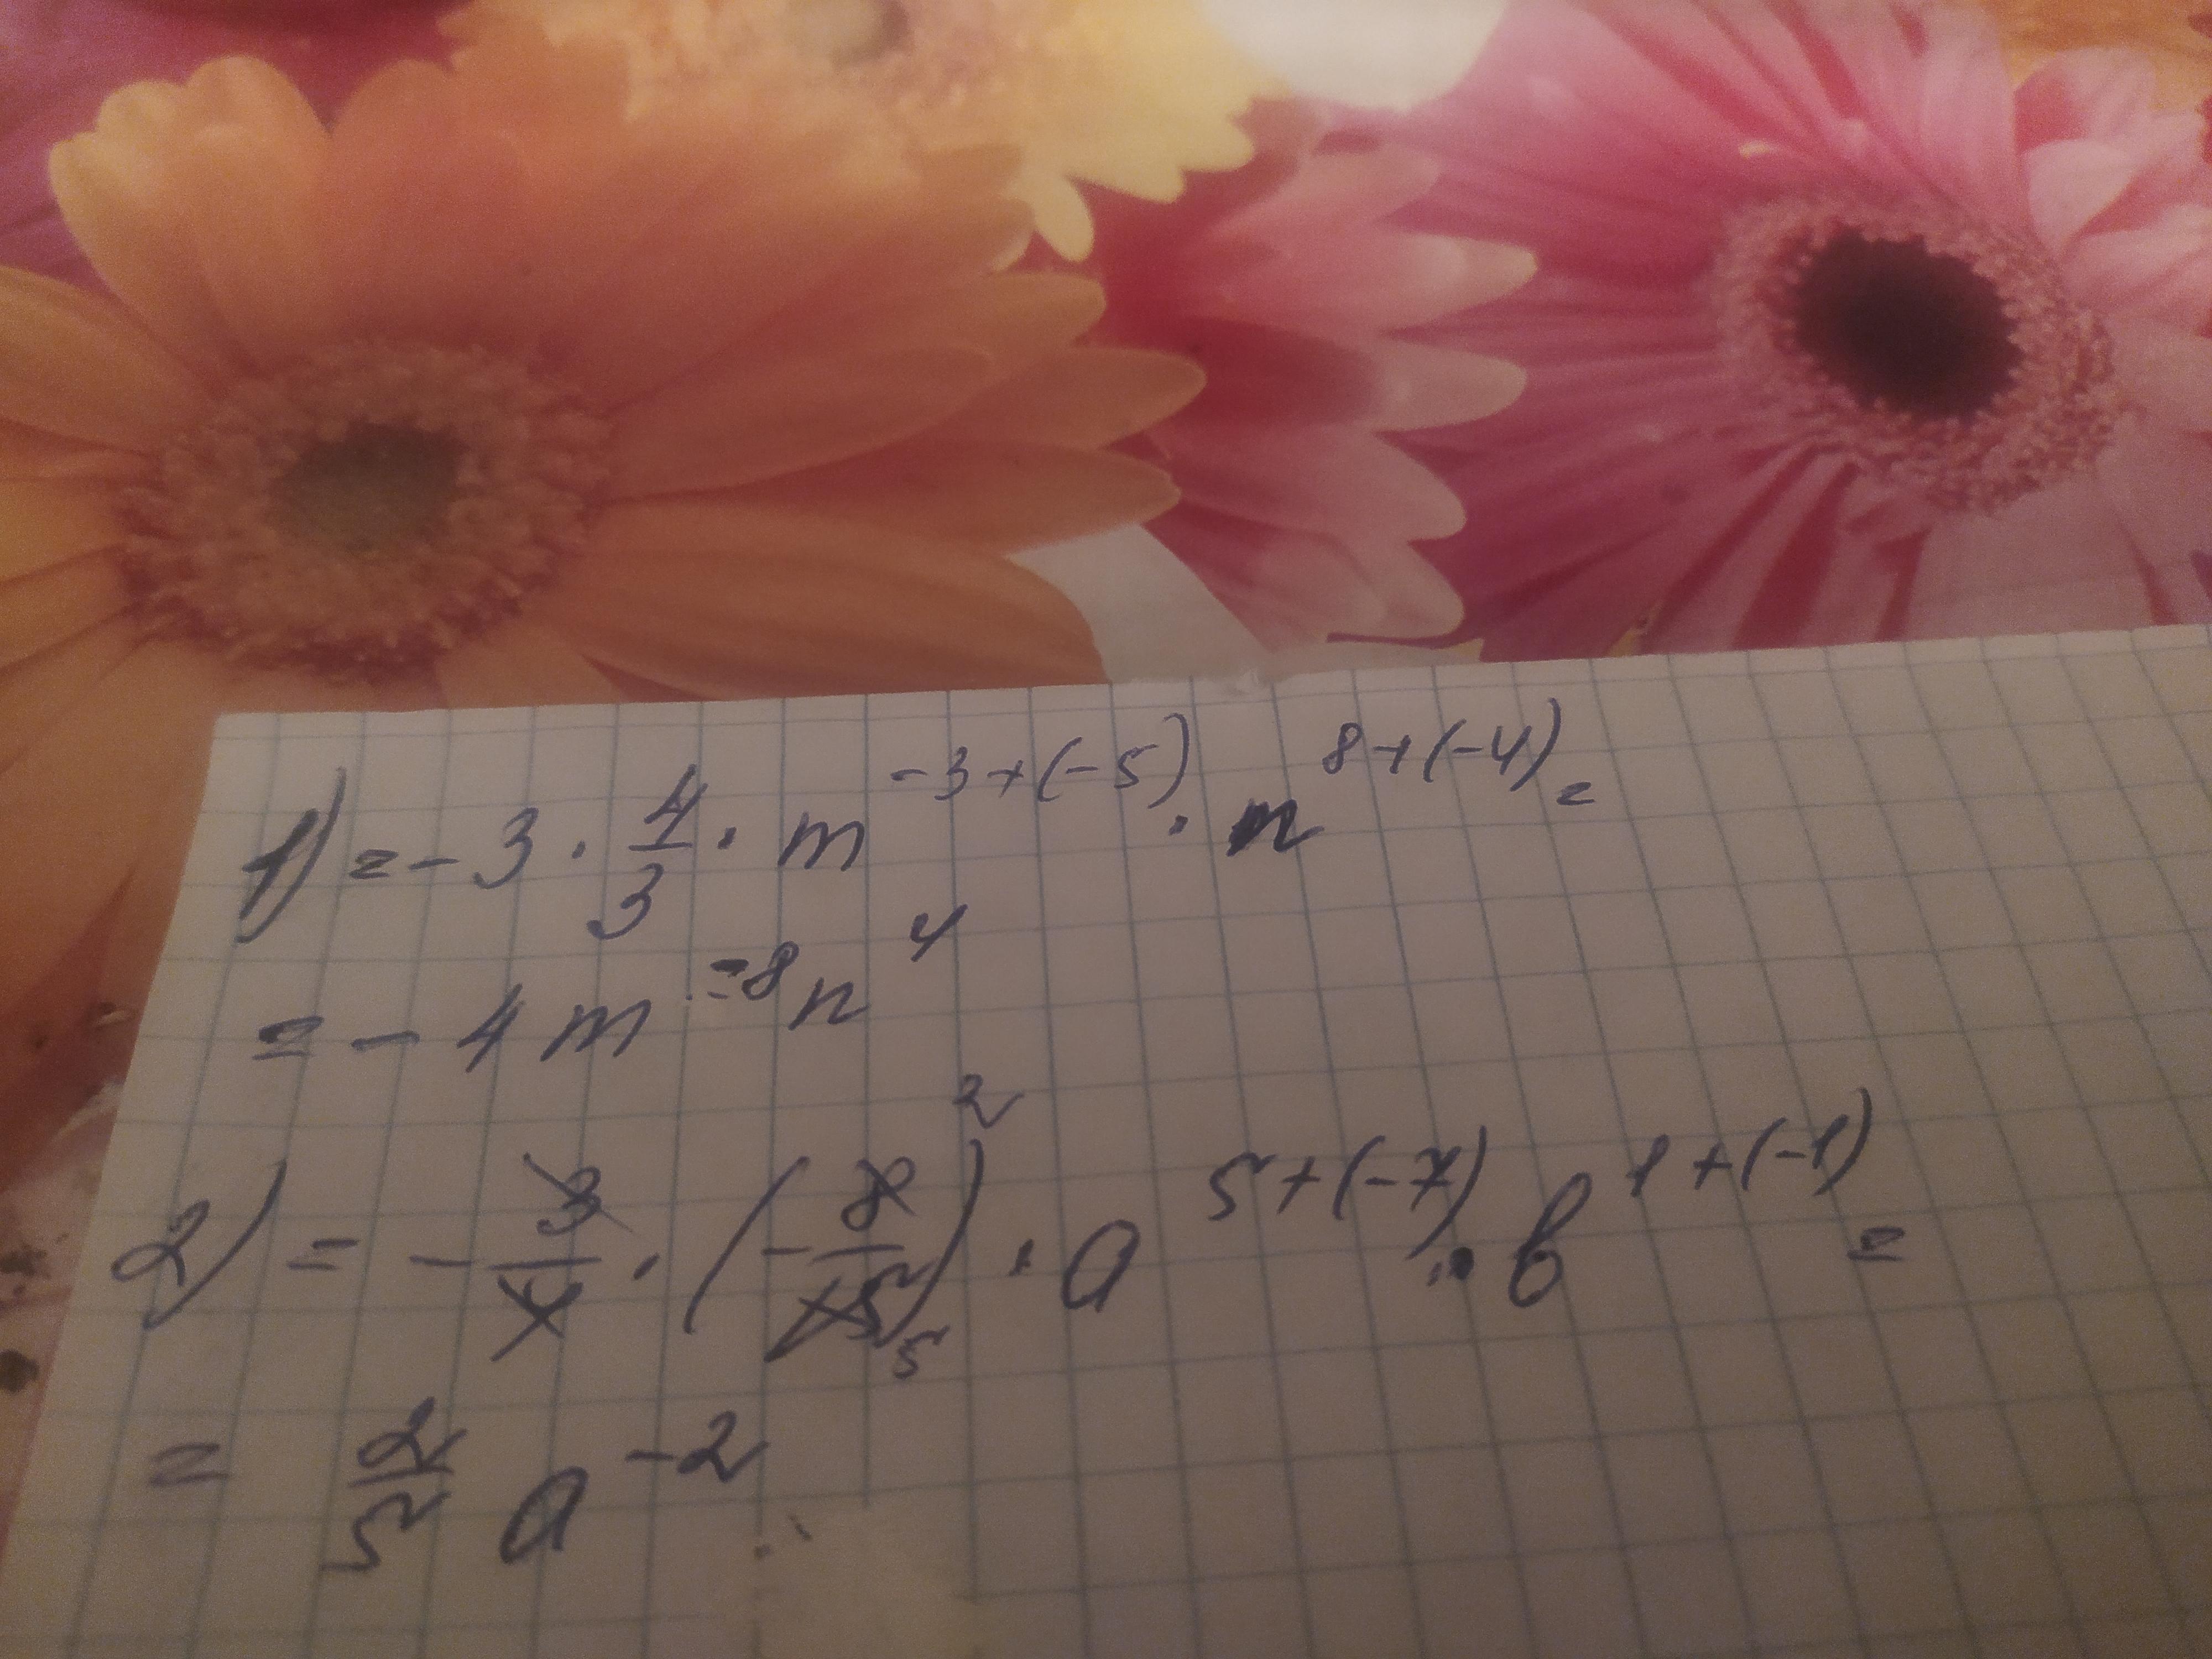 1) = - 3 · 4/3 · m^(-3+(-5)) · n^(8+(-4)) =
= - 4 m^(-8) n^4
2) = - 3/4 · (- 8/15)^2 5 · a^(5+(-7)) · b^(1+(-1)) =
= 2/5 a^(-2)